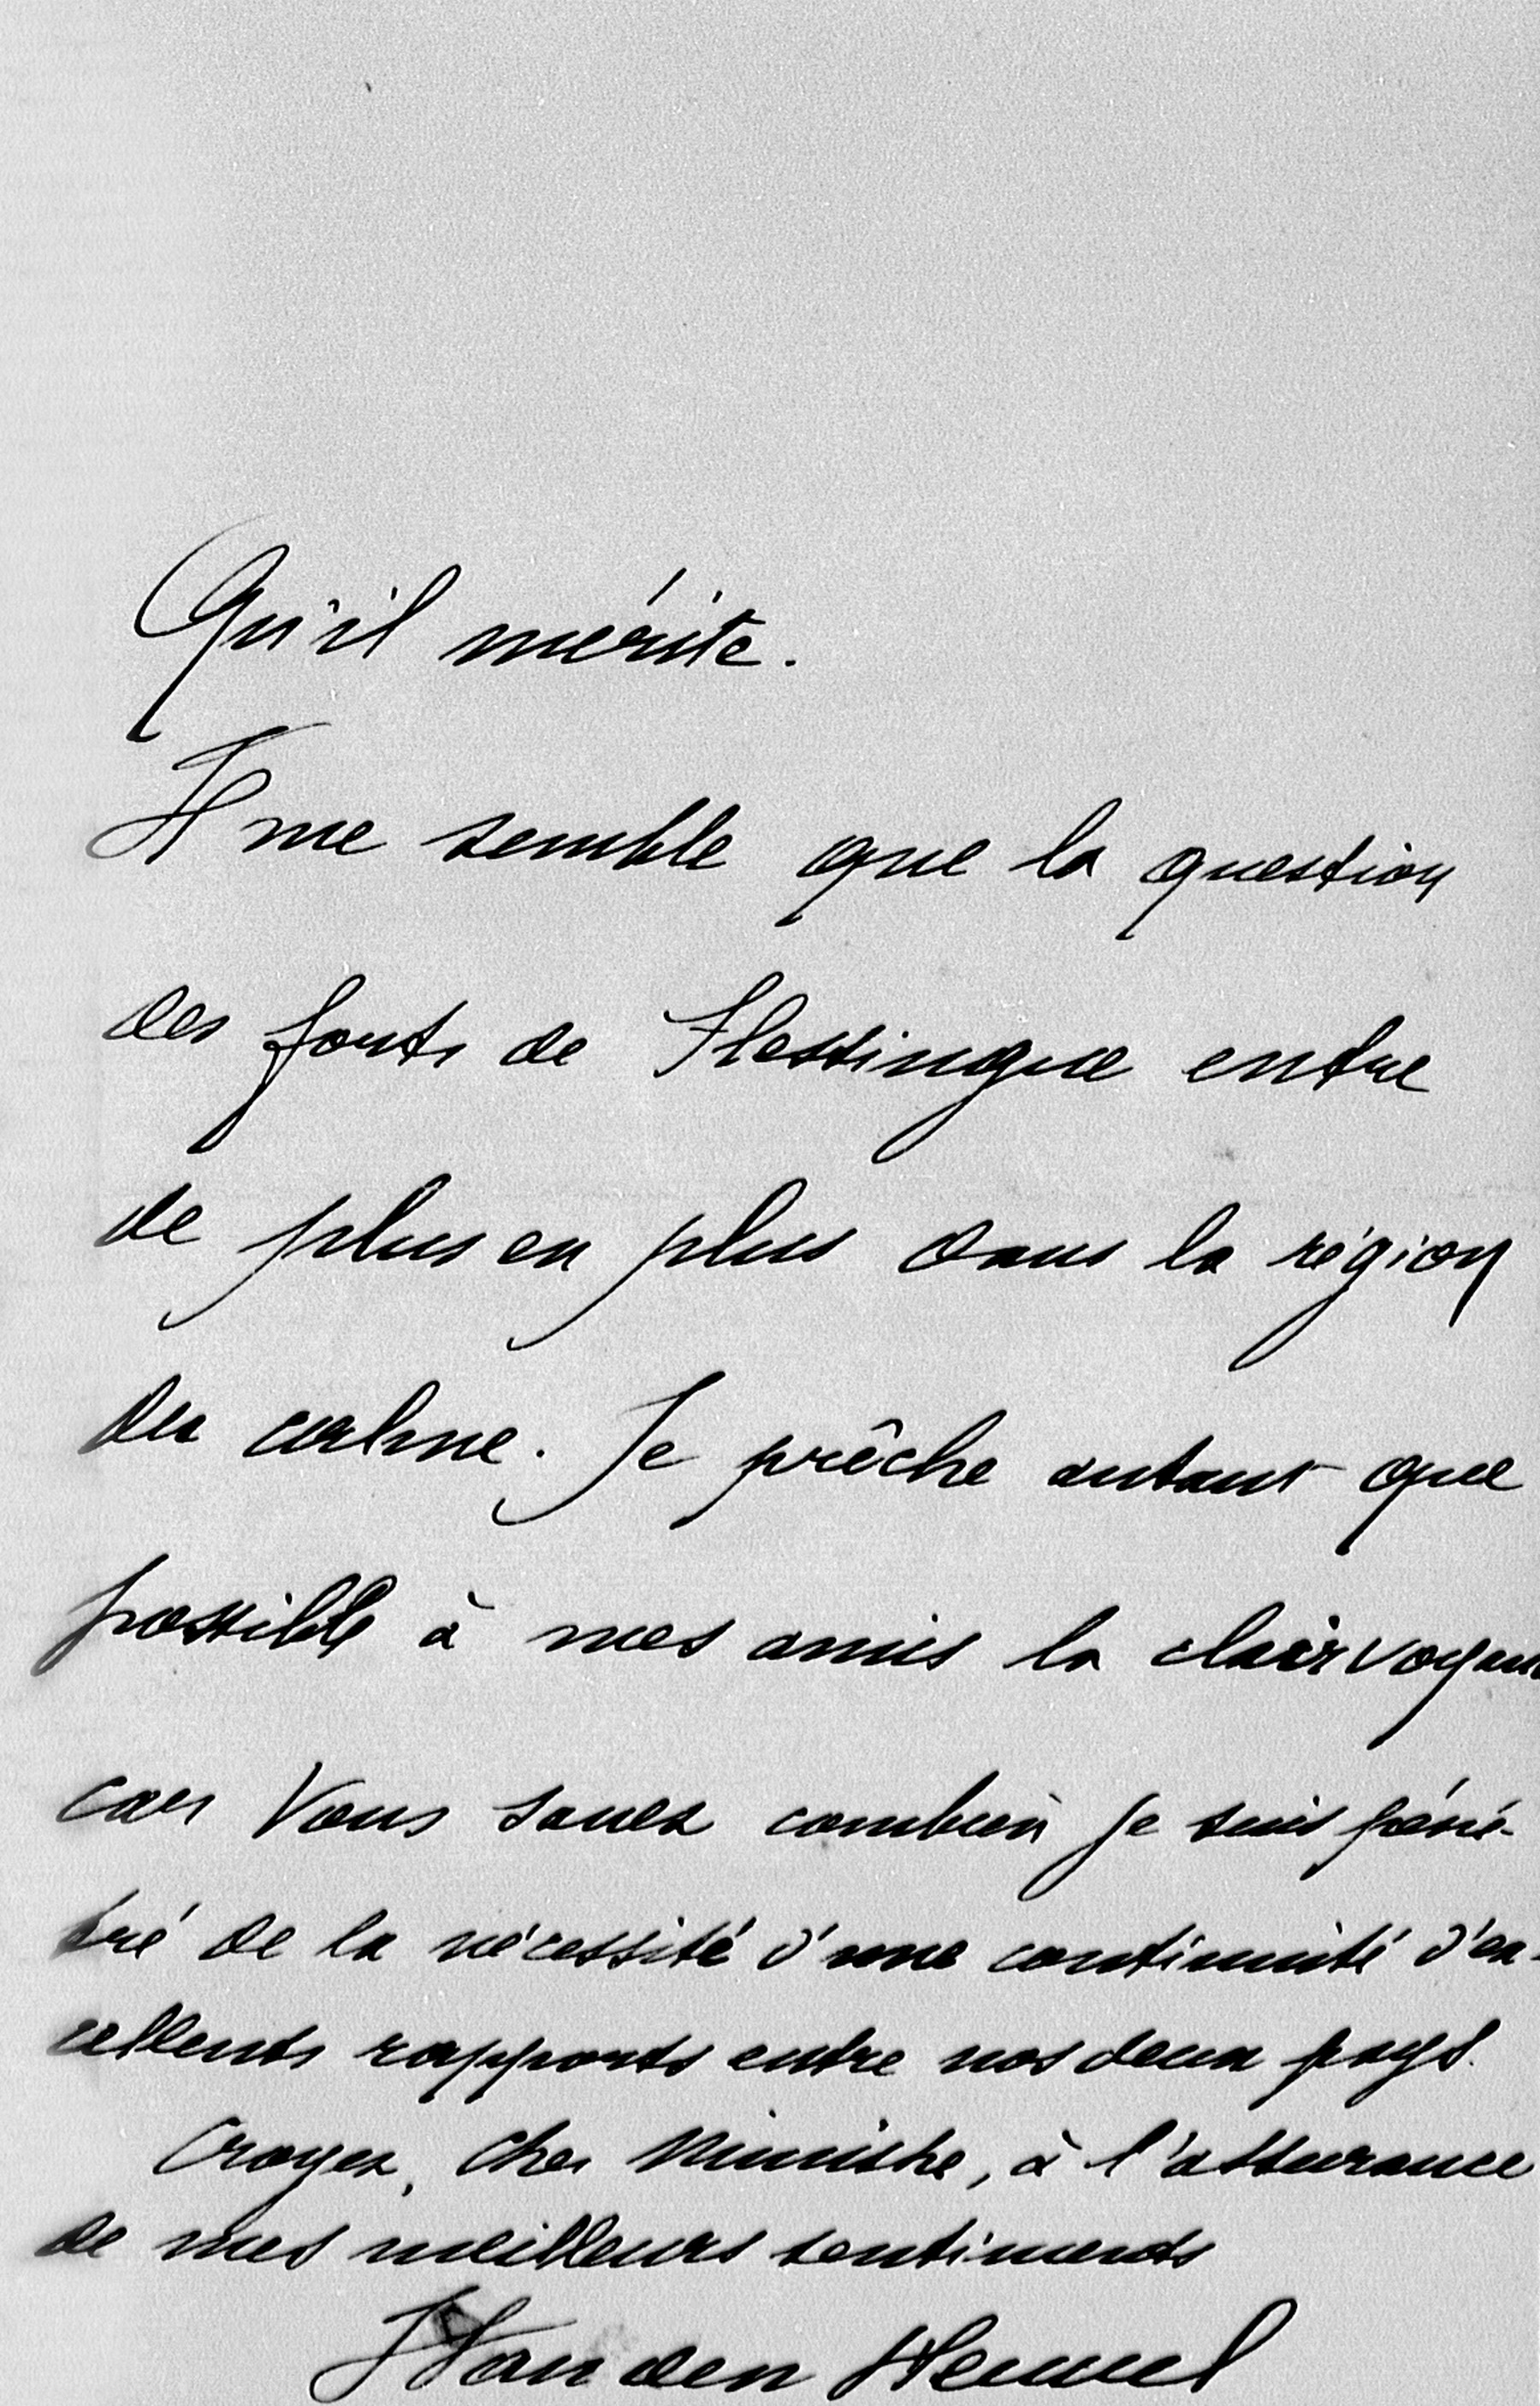 qu'il mérite.
Il me semble que la question
des forts de Flessingue entre
de plus en plus dans la région
du calme. Je prêche autant que
possible à mes amis la clairvoyan
car Vous savez combien je suis péné-
tré de la nécessité d'une continuité d'ex-
cellents rapports entre nos deux pays.
Croyez, cher Ministre, à l'assurance
de mes meilleurs sentiments
J Van den Heuvel